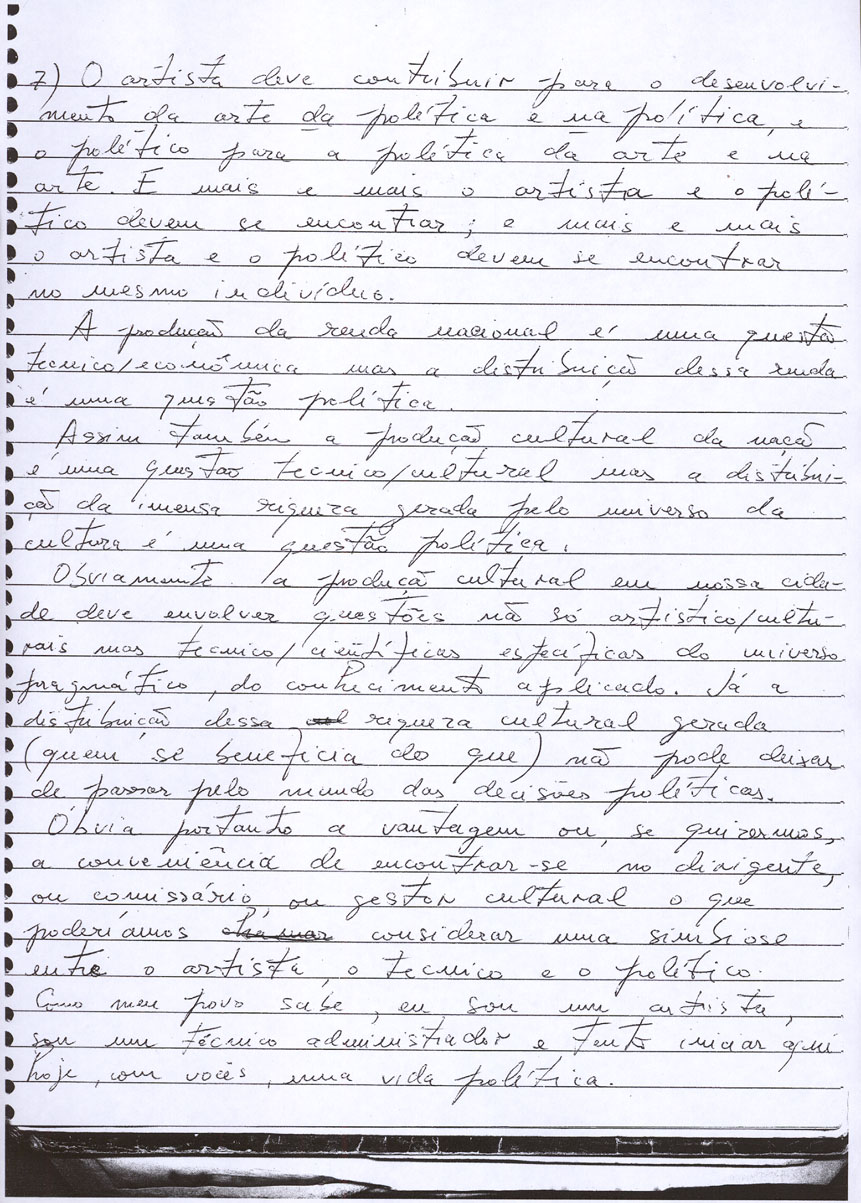 7) O artista deve contribuir para o desenvolvi-
mento da arte da política e na política, e
o político para a política da arte e na
arte. E mais e mais o artista e o polí-
tico devem se encontrar; e mais e mais
o artista e o político devem se encontrar
no mesmo indivíduo.
A produção da renda nacional é uma questão
tecnico/econômica mas a distribuição dessa renda
é uma questão política.
Assim também a produção cultural da nação
é uma questão tecnico/cultural mas a distribui-
ção da imensa riqueza gerada pelo universo da
cultura é uma questão política.
Obviamente a produção cultural em nossa cida-
de deve envolver questões não só artistico/cultu-
rais mas tecnico/científicas específicas do universo
pragmático, do conhecimento aplicado. Já a
distribuição dessa riqueza cultural gerada
(quem se beneficia do que) não pode deixar
de passar pelo mundo das decisões políticas.
Óbvia portanto a vantagem ou, se quizermos,
a conveniência de encontrar-se no dirigente,
ou comissário, ou gestor cultural o que
poderíamos chamar considerar uma simbiose
entre o artista, o tecnico e o político.
Como meu povo sabe, eu sou um artista,
sou um técnico administrador e tento iniciar aqui
hoje, com vocês, uma vida política.